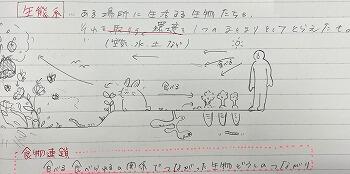 生態系… ある場所に生活する生物たちと、
それを取りまく環境を1つのまとまりとしてとらえたもの
(空気 水 土 など)
食べる
食べる
食物連鎖
食べる 食べられるの関係でつながった生物どうしのつながり